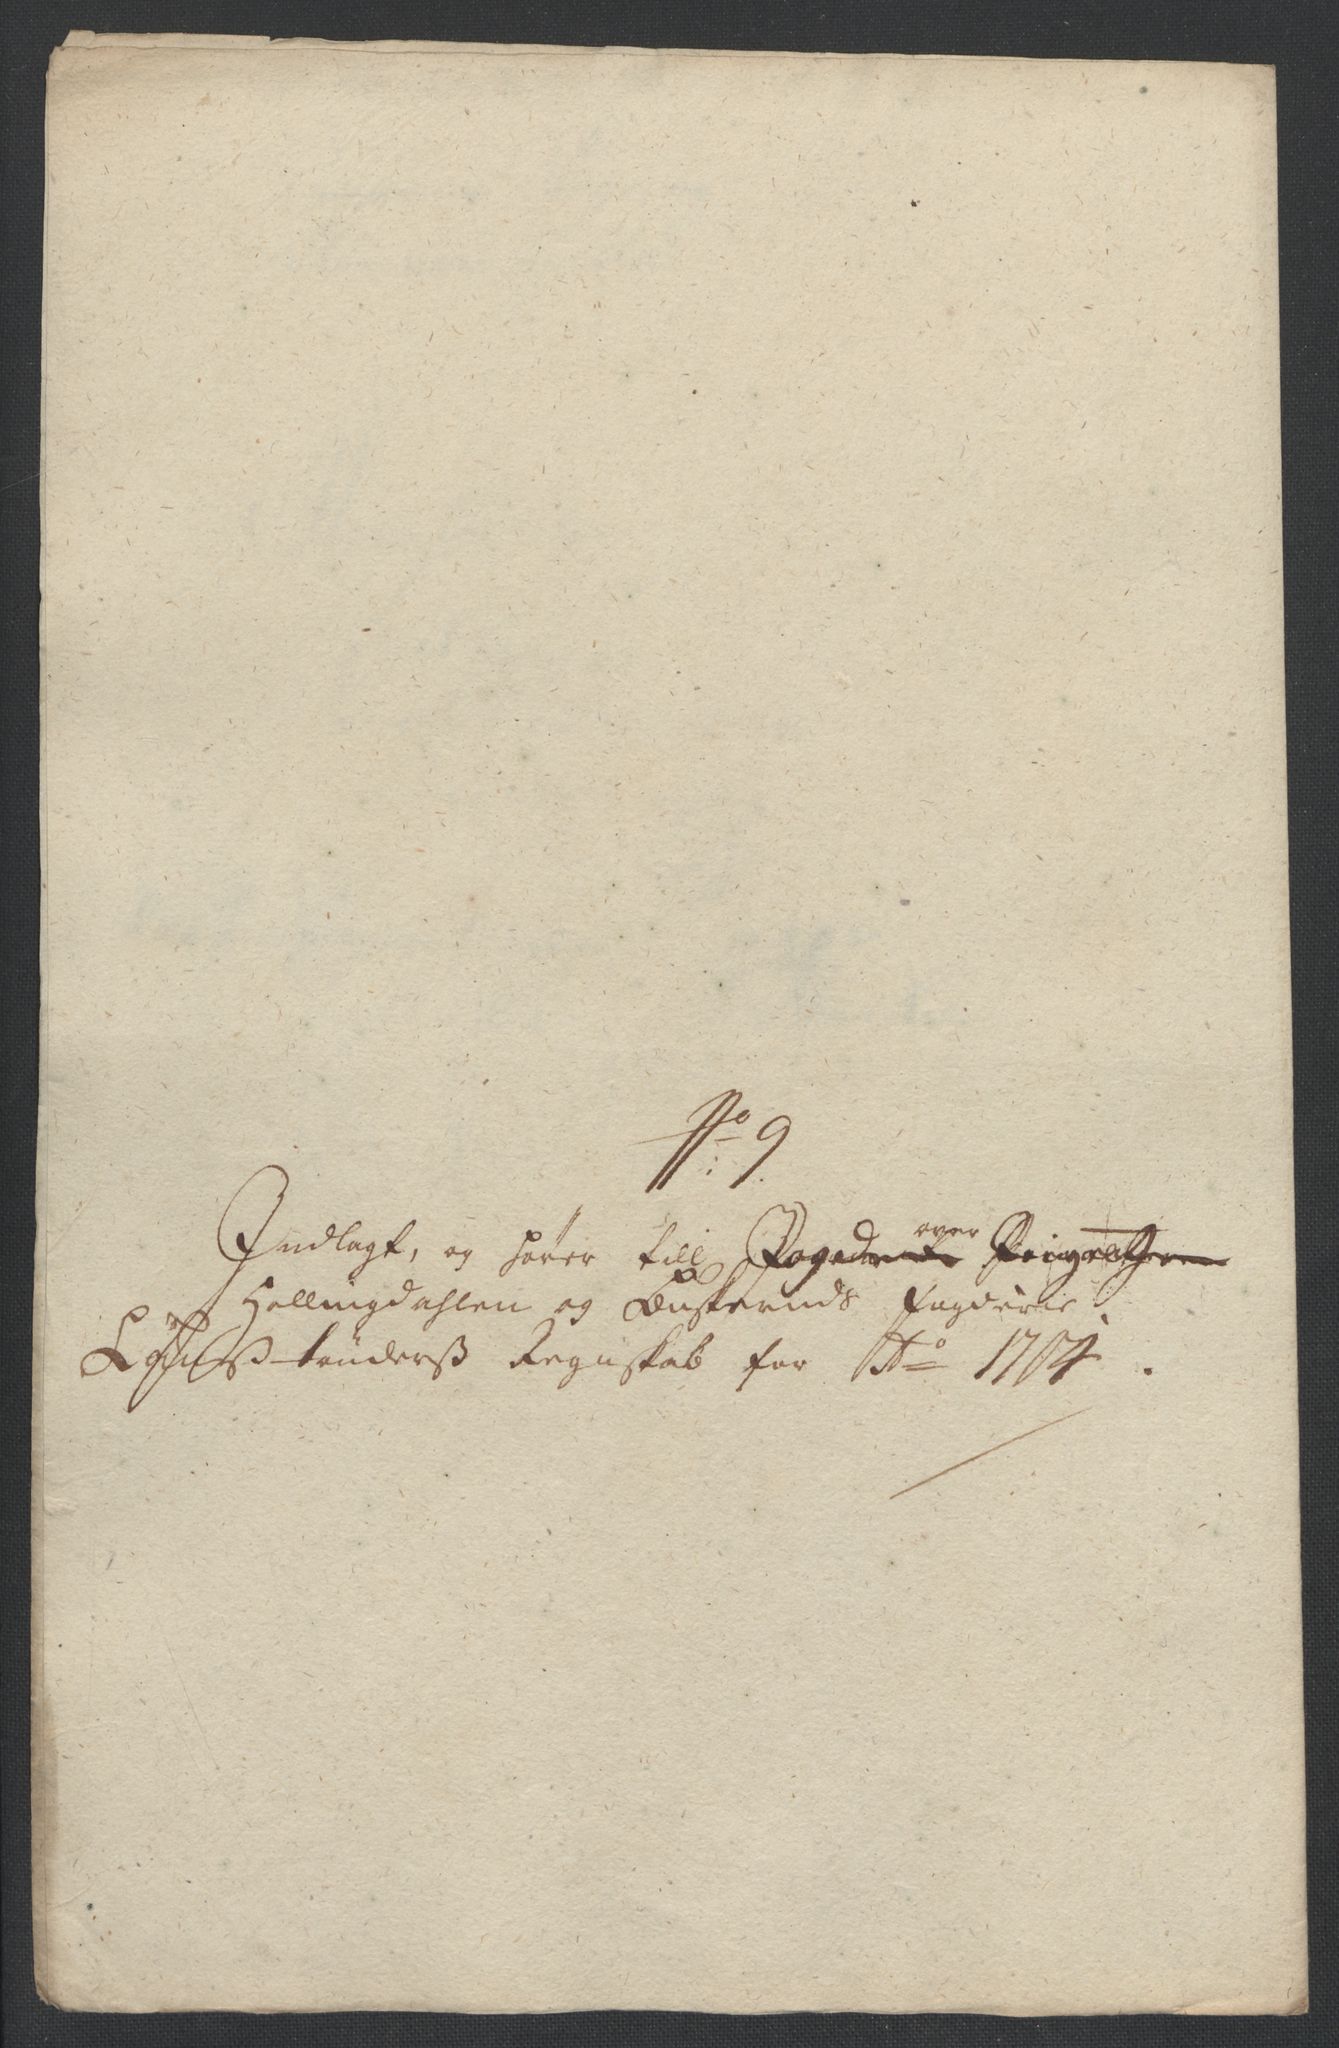 No 9
Indlagt, og hører till Fogden over Ringerige
Hallingdahlen og Buskeruds fogderie
Regnskab for Ao 1704.